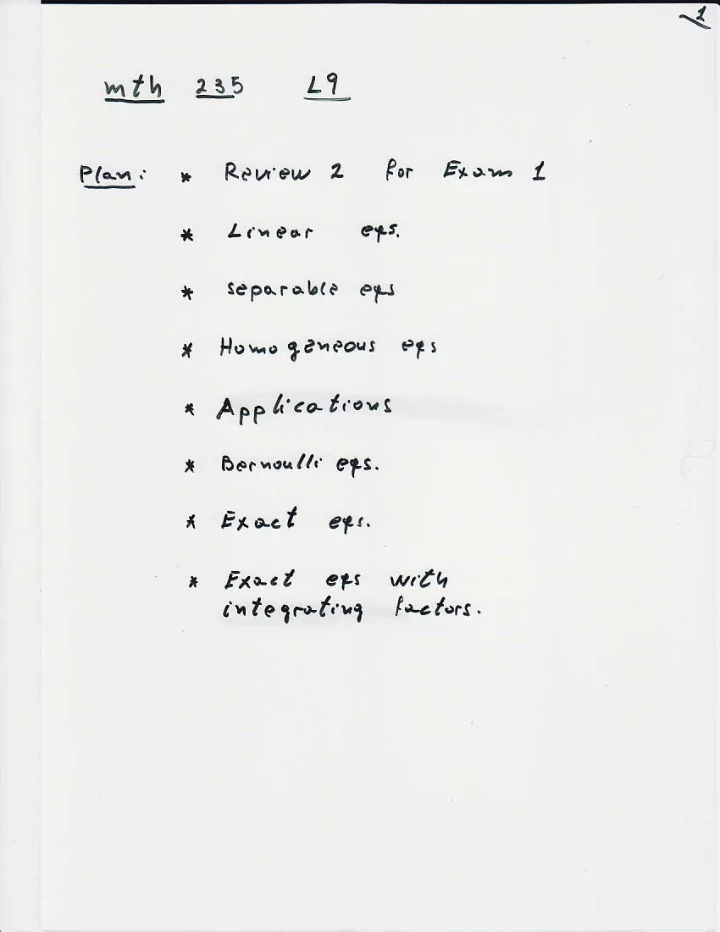 1
mth 235 L9
Plan: * Review 2 for Exam 1
* Linear eqs.
* separable eqs
* Homogeneous eqs
* Applications
* Bernoulli eqs.
* Exact eqs.
* Exact eqs with
integrating factors.